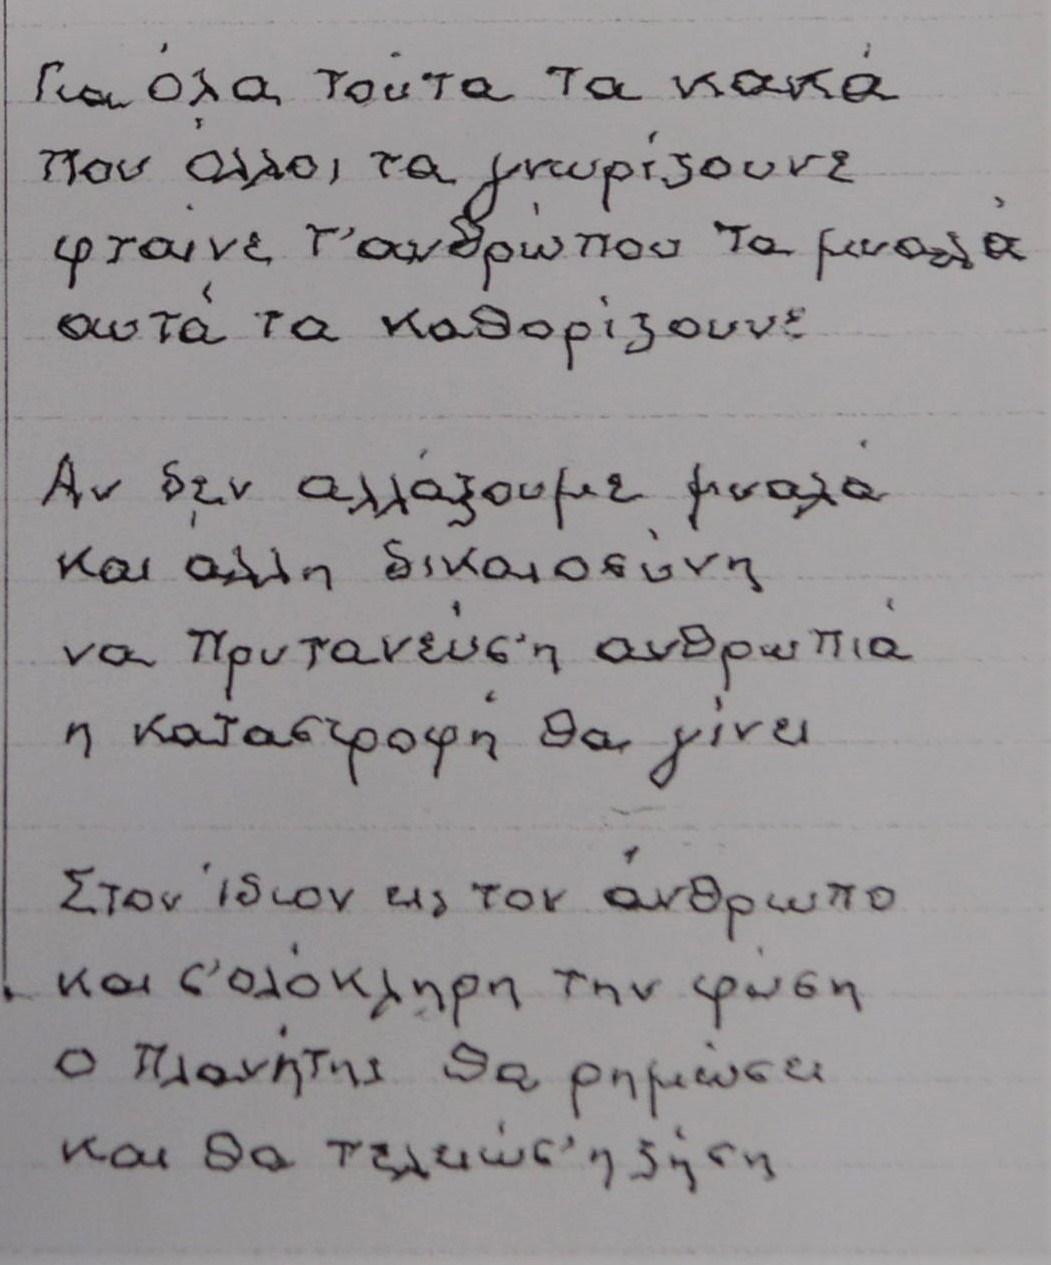 Για όλα τούτα τα κακά
που άλλοι τα γνωρίζουνε
φταίνε τ'ανθρώπου τα μυαλά
αυτά τα καθορίζουνε
Αν δεν αλλάξουμε μυαλά
και άλλη δικαιοσύνη
να πρυτανεύσ'η ανθρωπιά
η καταστροφή θα γίνει
Στον ίδιον εις τον άνθρωπο
και σ'ολόκληρη την φύση
ο πλανήτης θα ρημώσει
και θα τελειώσ'η ζήση